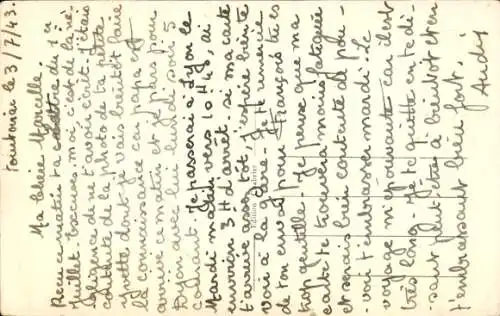 Tournai le 3/7/43.
Ma chère Marcelle.
Reçu ce matin ta lettre du 1er
juillet. Excuses-moi, c'est de la né-
gligence de ne t'avoir écrit. J'étais
contente de la photo de ta petite
Yvette dont je vais bientôt faire
la connaissance car papa est
arrivé ce matin et je pars pour
Dijon avec lui lundi soir 5
courant. Je passerai à Lyon le
Mardi matin vers 10 H 45, ai
environ 3 H d'arrêt. Si ma carte
t'arrive assez tôt, j'espère bien te
voir à la gare. Je te remercie
de ton envoi pour François tu es
trop gentille. Je pense que ma
carte te trouvera moins fatiguée
et serais bien contente de pou-
voir t'embrasser mardi. Le
voyage m'épouvante car il est
très long. Je te quitte en te di-
sant peut-être à bientôt et en
t'embrassant bien fort.
Andrée
Edition